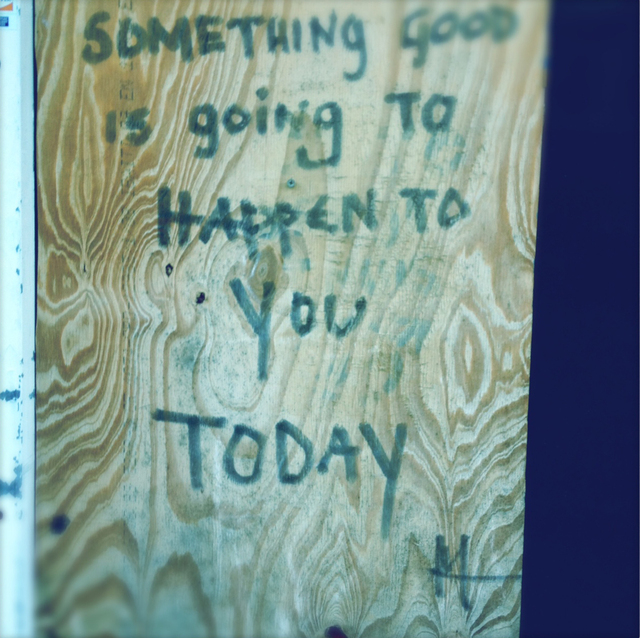 SOMETHING GOOD
is going TO
HAPPEN TO
YOU
TODAY
M